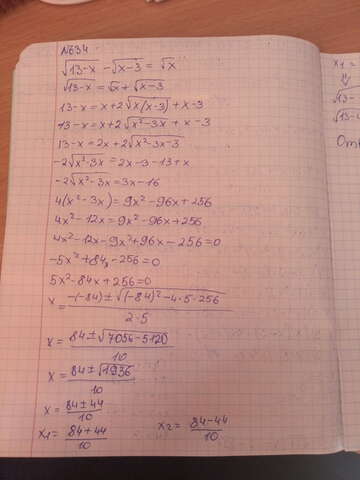 №634
√13-x - √x-3 = √x
√13-x = √x + √x-3
13-x = x+2√x(x-3) + x-3
13-x = x+2√x²-3x + x-3
13-x = 2x + 2√x²-3x-3
-2√x²-3x = 2x-3-13+x
-2√x²-3x = 3x-16
4(x²-3x) = 9x²-96x+256
4x²-12x = 9x²-96x+256
4x²-12x-9x²+96x-256=0
-5x²+84x-256=0
5x²-84x+256=0
x = -(-84)±√(-84)²-4·5·256 / 2·5
x = 84±√7056-5120 / 10
x = 84±√1936 / 10
x = 84±44 / 10
x₁ = 84+44 / 10 x₂ = 84-44 / 10
x₁ =
√13-
√13-
Отв